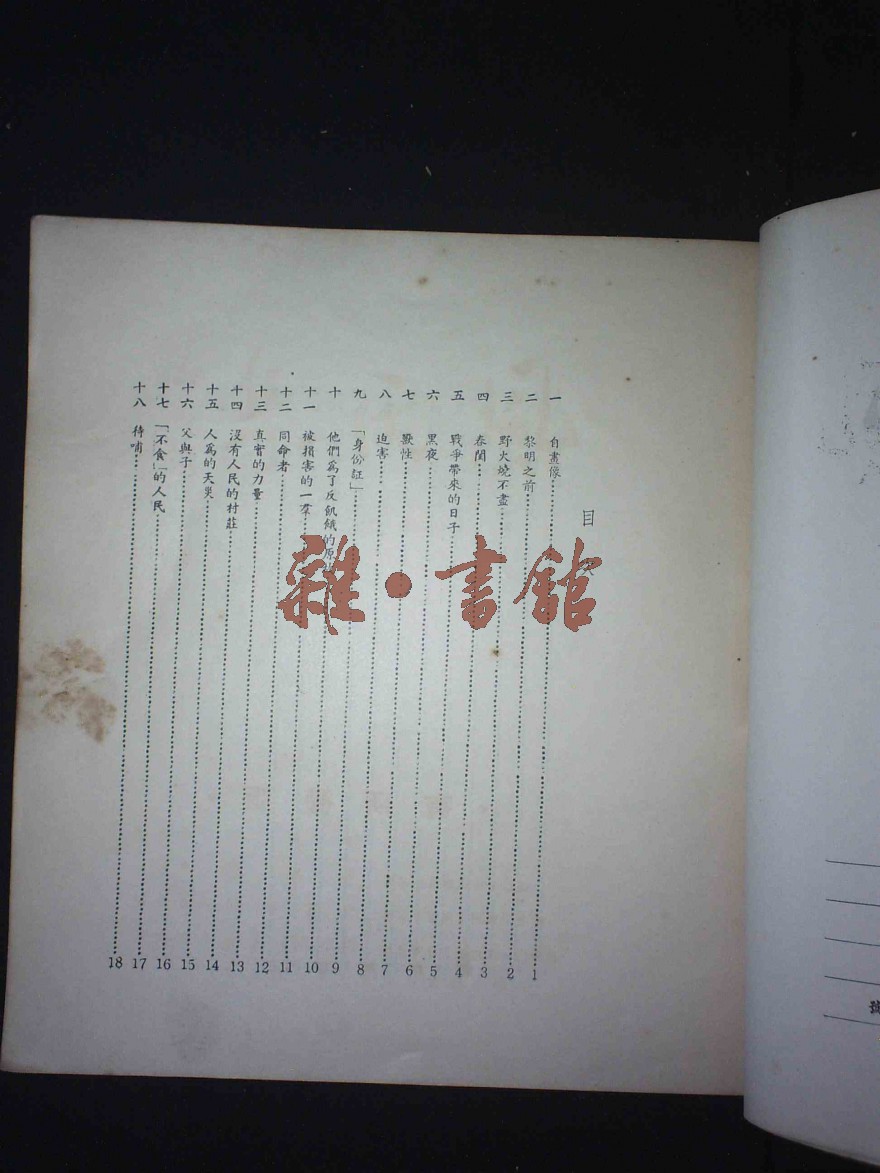 目
一 自畫像 1
二 黎明之前 2
三 野火燒不盡 3
四 春閨 4
五 戰爭帶來的日子 5
六 黑夜 6
七 獸性 7
八 迫害 8
九 「身份証」 9
十 他們爲了反飢餓的原
十一 被損害的一羣 11
十二 同命者 12
十三 真實的力量 13
十四 沒有人民的村莊 14
十五 人爲的天災 15
十六 父與子 16
十七 「不食」的人民 17
十八 待哺 18
雜·書館